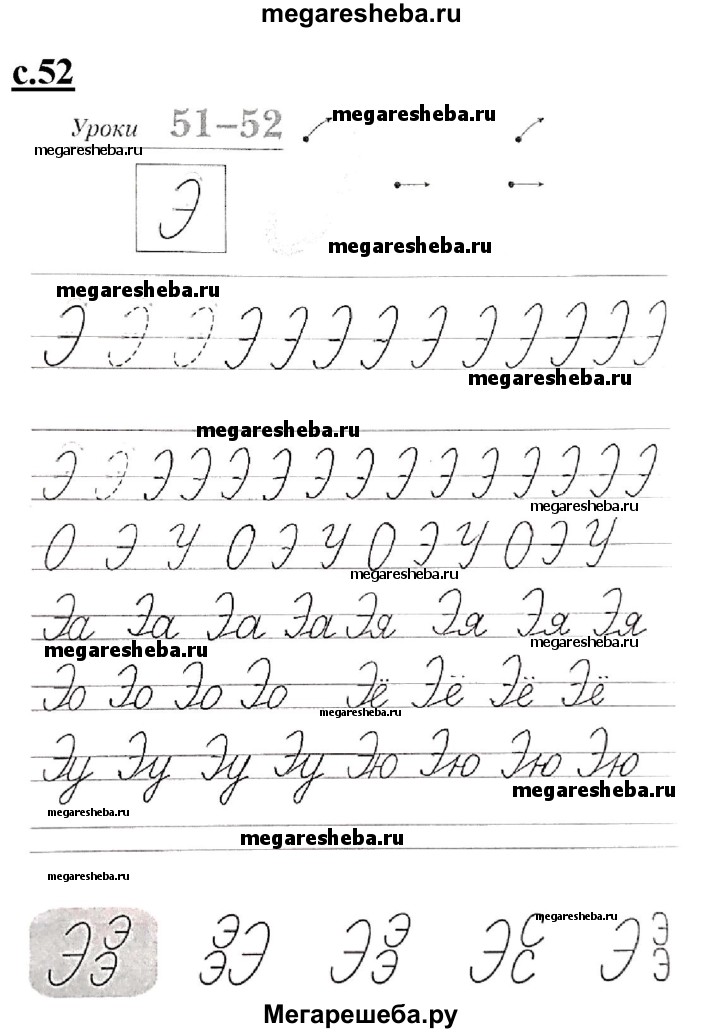 megaresheba.ru
с.52
Уроки 51–52 megaresheba.ru
megaresheba.ru
Э
megaresheba.ru
megaresheba.ru
Э Э Э Э Э Э Э Э Э Э Э Э Э
megaresheba.ru
megaresheba.ru
Э Э Э Э Э Э Э Э Э Э Э Э Э Э Э
megaresheba.ru
О Э У О Э У О Э У О Э У
megaresheba.ru
Эа Эа Эа Эа Эя Эя Эя Эя
megaresheba.ru megaresheba.ru
Эо Эо Эо Эо Эё Эё Эё Эё
megaresheba.ru
Эу Эу Эу Эу Эю Эю Эю Эю
megaresheba.ru
megaresheba.ru
megaresheba.ru
megaresheba.ru
megaresheba.ru
Ээ э э эЭ Ээ э Эс с Ээ э
Мегарешеба.ру